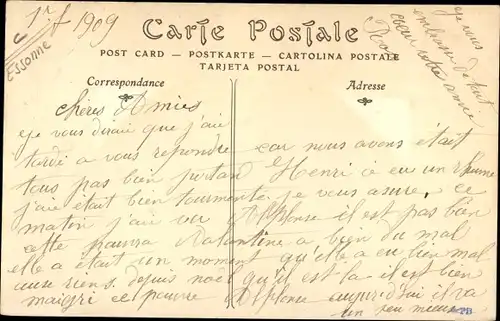 1r f 1909
Essonne
Carte Postale
POST CARD — POSTKARTE — CARTOLINA POSTALE
TARJETA POSTAL
Correspondance
Adresse
je vous
embrasse de tout
cœur votre amie
Chères Amies
je vous dirai que j'aie
tardé a vous repondre car nous avons était
tous pas bien portant Henri a eu un rhume
j'aie était bien tourmenté je vous assure ce
matin j'aie vu Alphonse il est pas bien
cette pauvre Valantine a bien du mal
elle a était un moment qu'elle a eu bien mal
aux riens depuis noël qu'il est la il est bien
maigri ce pauvre Alphonse aujourd'hui il va
un peu mieux
TB